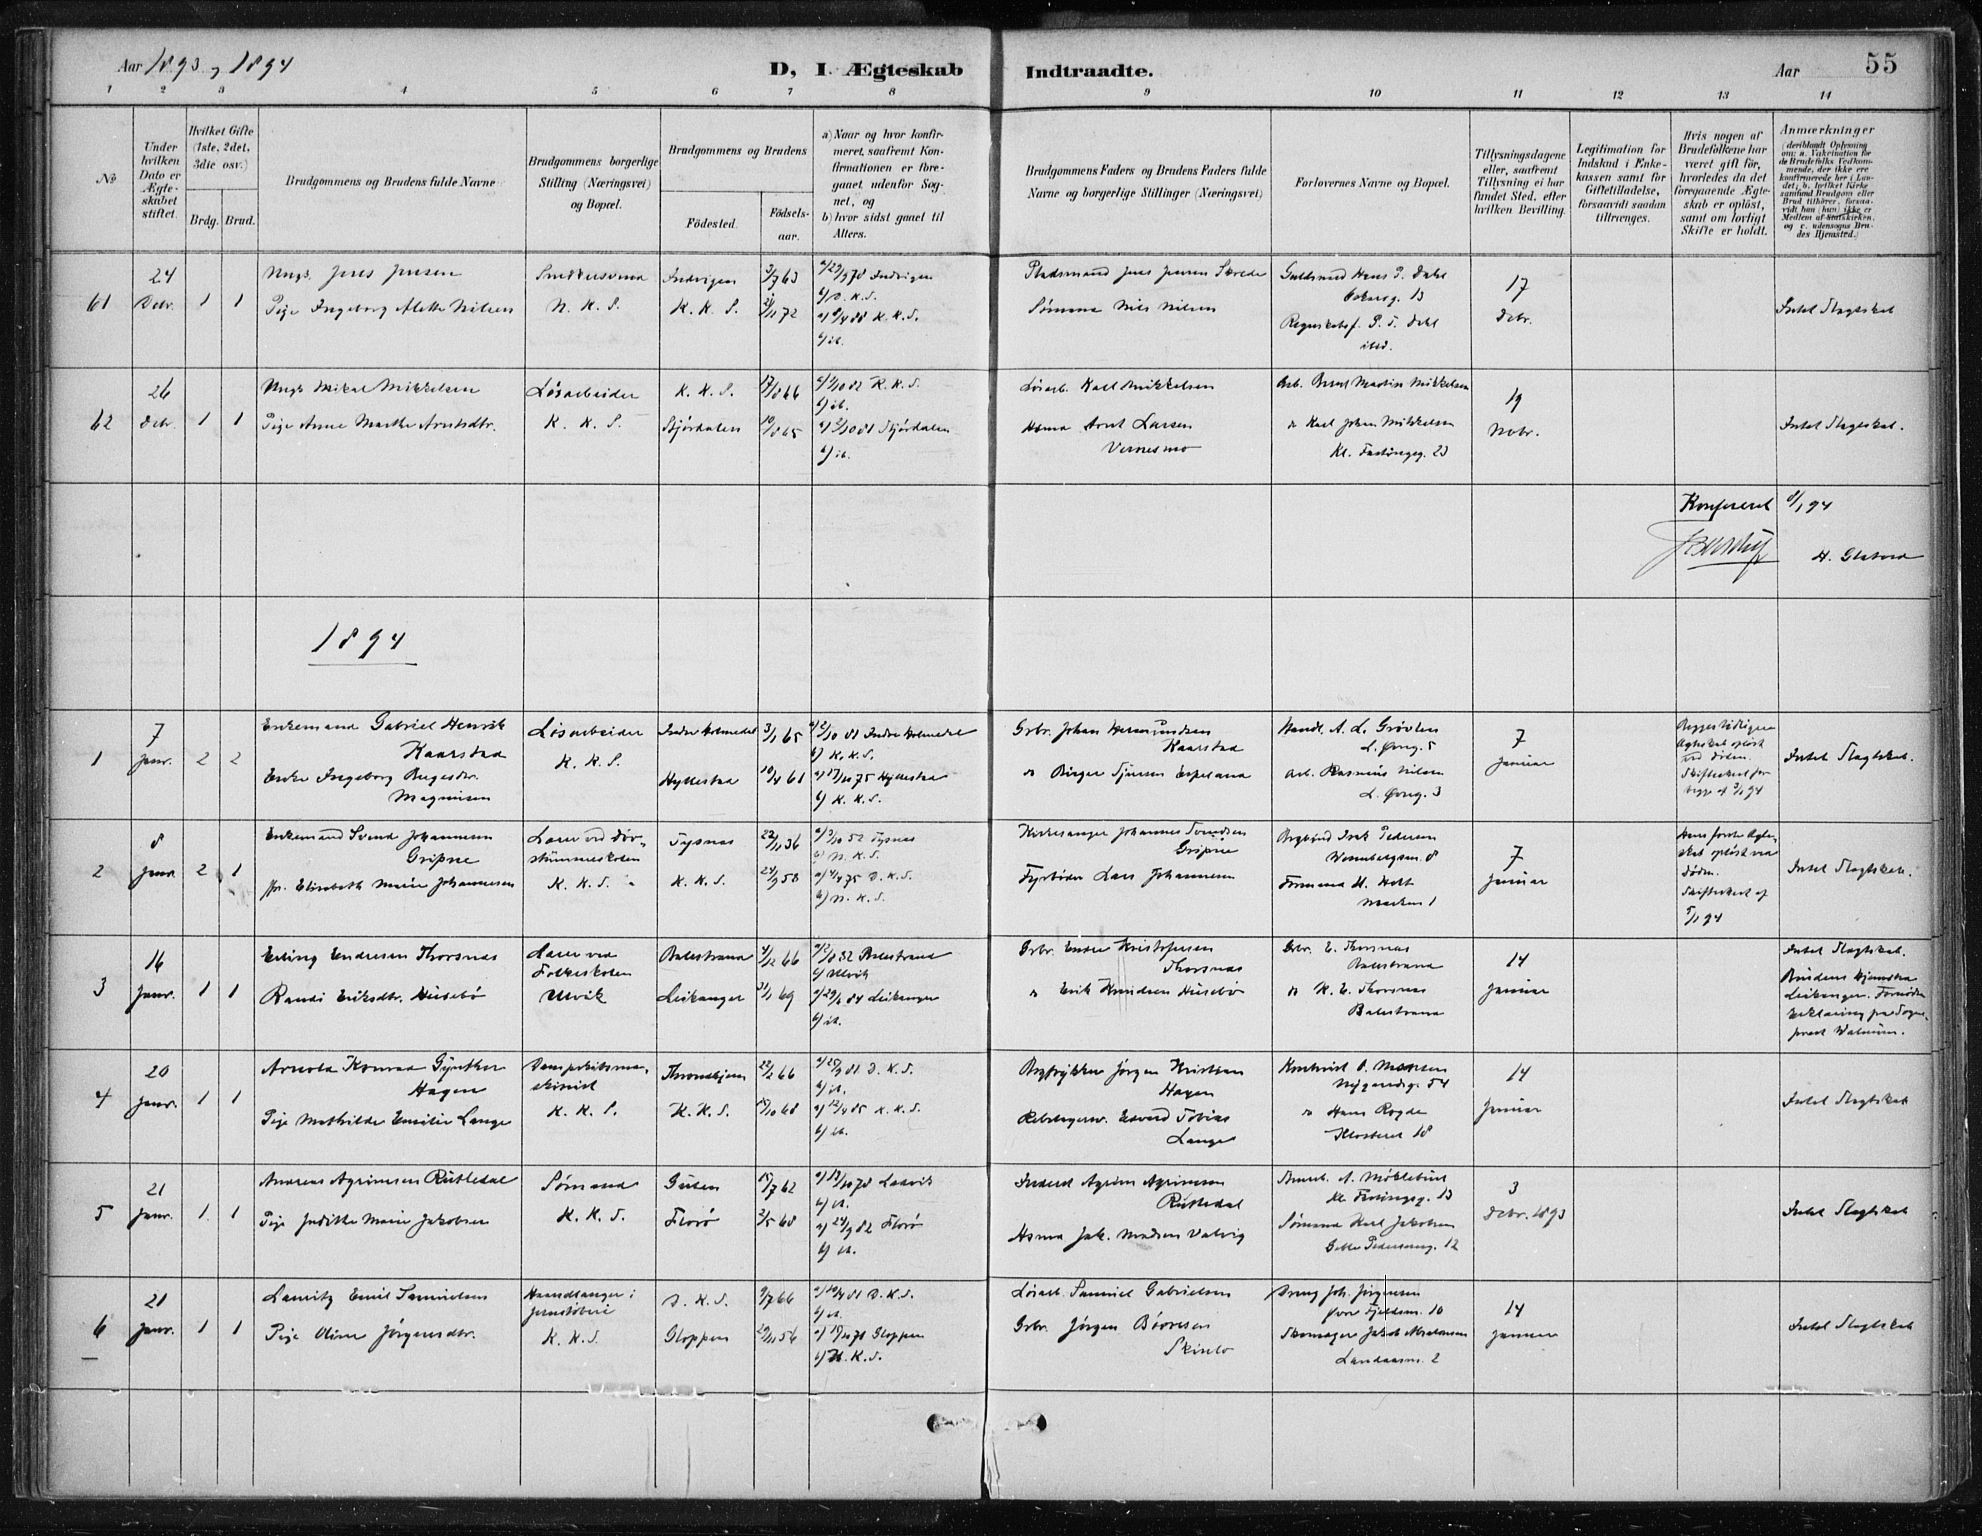 Aar 1893, 1894
D, I. Ægteskab
Indtraadte.
Aar
55
1 2 3 4 5 6 7 8 9 10 11 12 13 14
No
Under hvilken Dato er Ægteskabet stiftet.
Hvilket Gifte (1ste, 2det, 3die osv.)
Brdg. Brud.
Brudgommens og Brudens fulde Navne
Brudgommens borgerlige Stilling (Næringsvei) og Bopæl.
Brudgommens og Brudens
Fødested.
Fødselsaar.
a) Naar og hvor konfirmeret, saafremt Konfirmationen er foregaaet udenfor Sognet, og
b) hvor sidst gaaet til Alters.
Brudgommens Faders og Brudens Faders fulde Navne og borgerlige Stillinger (Næringsvei)
Forlovernes Navne og Bopæl.
Tillysningsdagene eller, saafremt Tillysning ei har fundet Sted, efter hvilken Bevilling.
Legitimation for Indskud i Enkekassen samt for Giftetilladelse, forsaavidt saadan tiltrænges.
Hvis nogen af Brudefolkene har været gift før, hvorledes da det foregaaende Ægteskab er opløst, samt om lovligt Skifte er holdt.
Anmærkninger
61
24 Debr.
1 1
Ungk. Jens Jensen
Pige Ingeborg Alette Nilsen
Smedesvend
N. K. S.
Indvigen
K. K. S.
3/7 63
a) 29/9 78 Indvigen
b) D. K. S.
b) ib.
Pladsmand Jens Jensen Skrede
Sømand Nils Nilsen
Guldsmed Hans P. Dahl
Regnskabsf. P. T. Dahl
ibid.
17 Debr.
Intet Slagtskab
62
26 Debr.
1 1
Ungk. Mikal Mikkelsen
Pige Anne Marthe Arntsdtr.
Løsarbeider
K. K. S.
K. K. S.
Stjørdalen
17/8 66
b) ib.
b) ib.
Løsarb. Karl Mikkelsen
Hsmd Arnt Larsen
Vernesmo
Arb. Bernt Martin Mikkelsen
" Karl Johan Mikkelsen
Kl. Fastingsg. 23
19 Nobr.
Intet Slagtskab.
Konfereret 8/1 94
1894
1
7 Janr.
2 2
Enkemand Gabriel Henrik
Kaarstad
Enke Ingeborg Birgesdtr.
Magnusen
Løsarbeider
K. K. S.
Indre Holmedal
Hyllestad
3/1 65
10/4 61
a) 2/10 81 Indre Holmedal
b) K. K. S.
a) 17/10 75 Hyllestad
b) K. K. S.
Grbr. Johan Hermundsen
Kaarstad
" Birger Sjursen Espeland
Handl. A. L. Grøvlen
L. Øvreg. 5
Arb. Rasmus Nilsen
L. Øvreg. 3
7 Januar
Begges tidligere
Ægteskab opløst
ved Døden.
Skifteattest for
begge af 3/1 94
Intet Slagtskab.
2
8 Janr.
2 1
Enkemand Svend Johannesen
Gripne
Elisabeth Marie Johannesen
Lærer ved Døvstummeskolen
K. K. S.
Tysnes
K. K. S.
22/11 36
24/9 58
a) 3/10 52 Tysnes
b) N. K. S.
a) 4/4 75 D. K. S.
b) N. K. S.
Kirkesanger Johannes Svendsen
Gripne
Fyrbøder Lars Johannesen
Formand H. Holt
Marken 1
7 Januar
Hans første Ægteskab opløst ved
Døden.
Skifteattest af
5/1 94
Intet Slagtskab.
3
16 Janr.
1 1
Erling Endresen Thorsnes
Randi Eriksdtr. Husebø
Lærer ved
Folkeskolen
Ulvik
Balestrand
Leikanger
4/12 66
21/1 69
a) 2/7 82 Balestrand
b) Ulvik
a) 29/6 84 Leikanger
b) ib.
Grbr. Endre Kristofersen
Thorsnes
" Erik Knudsen Husebø
Grbr. E. Thorsnes
Balestrand
" K. E. Thorsnes
Balestrand
14 Januar
Intet Slagtskab.
Brudens Hjemsted
Leikanger. Fornøden
Erklæring fra Sogneprest Walnum.
4
20 Janr.
1 1
Arnold Konrad Günther
Hagen
Pige Mathilde Emilie Lange
Dampskibsmaskinist
K. K. S.
Throndhjem
K. K. S.
22/2 66
15/10 68
a) 25/9 81 D. K. S.
b) ib.
a) 12/4 85 K. K. S.
b) ib.
Bogtrykker Jørgen Kristian
Hagen
Rebslagersv. Edvard Tobias
Lange
Nygaardsg. 54
" Hans Rogde
Klosteret 18
14 Januar
Intet Slagtskab
5
21 Janr.
1 1
Andreas Agrimsen Rutledal
Pige Judithe Marie Jakobsen
Sømand
K. K. S.
Gulen
Florø
15/7 62
2/5 68
a) 13/10 78 Ladvik
b) ib.
a) 24/9 82 Florø
b) ib.
Inderst Agrim Agrimsen
Rutledal
Hsmd Jak. Madsen Valvig
Snurb. A. Møklebust
Kl. Fastingsg. 13
Sømand Karl Jakobsen
Gitte Pedersensg. 12
3 Debr. 1893
Intet Slagtskab
6
21 Janr.
1 1
Lauritz Emil Samuelsen
Pige Oline Jørgensdtr.
Haandlanger i
Jernstøberi
K. K. S.
D. K. S.
Gloppen
9/7 66
29/11 56
a) 10/4 81 D. K. S.
b) ib.
a) 19/11 71 Gloppen
b) K. K. S.
Løsarb. Samuel Gabrielsen
Grbr. Jørgen Børresen
Skinlo
Dreng Joh. Jørgensen
Øvre Fjeldsm. 10
Skomager Jakob Abrahamsen
Landaasm. 2
14 Januar
Intet Slagtskab